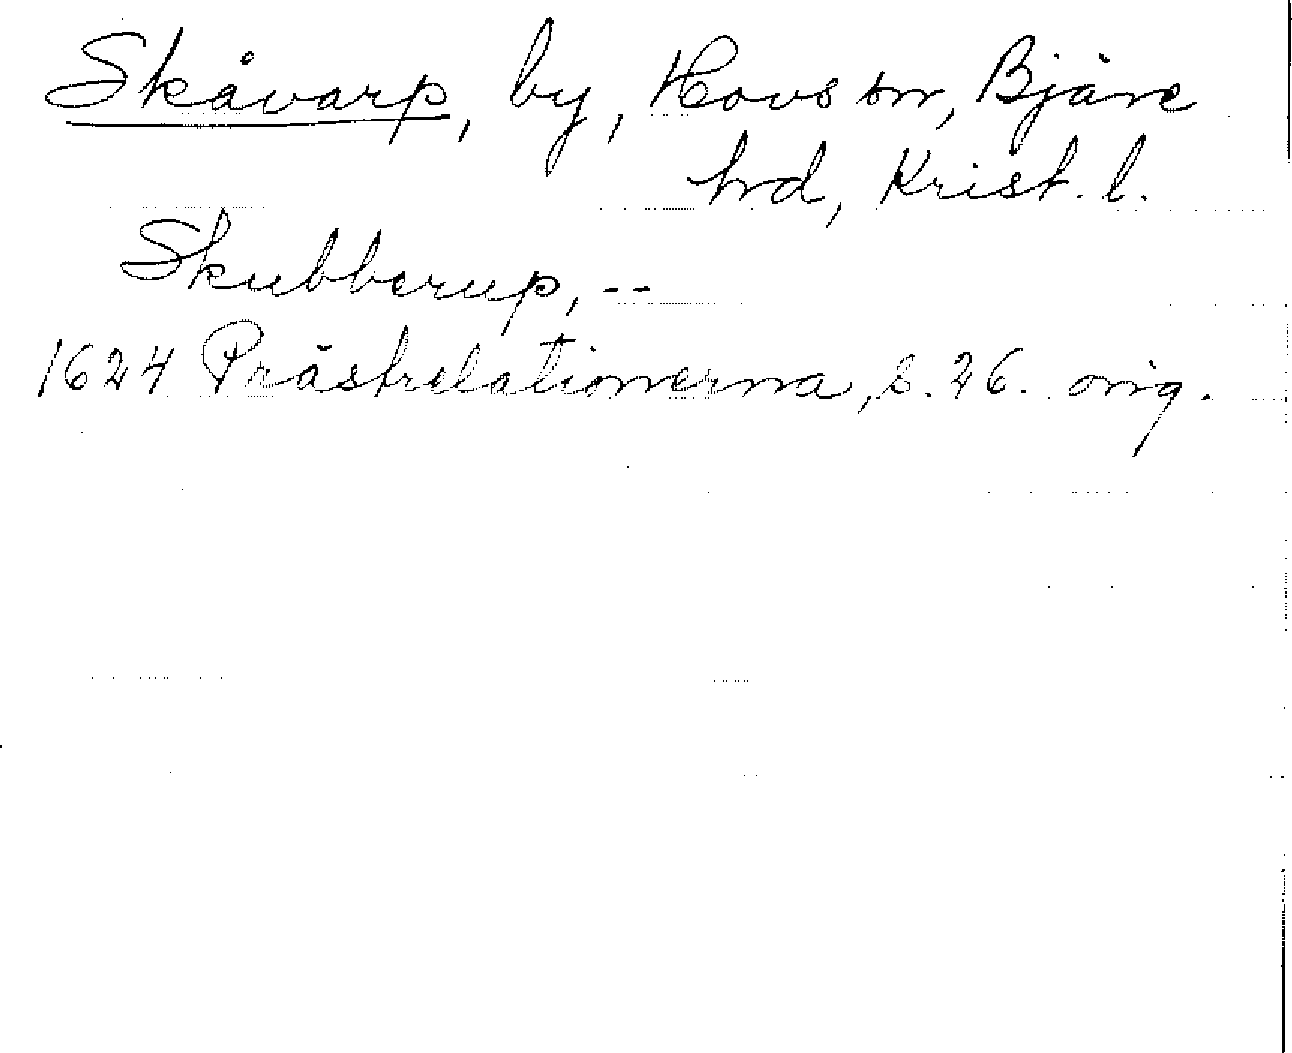 Skåvarp, by, Hovs sn, Bjäre
hrd, Krist. l.
Skubberup, --
1624 Prästrelationerna, s. 26. orig.